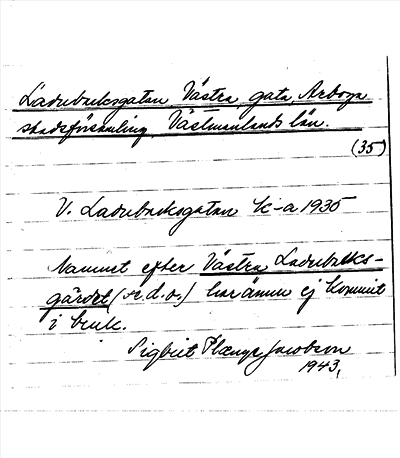 Ladubacksgatan, Västra, gata, Arboga
stadsförsamling, Västmanlands län.
(35)
V. Ladubacksgatan k-a 1935
Namnet efter Västra Ladubacks-
gärdet (se d.o.) har ännu ej kommit
i bruk.
Sigbrit Plænge Jacobson
1943.